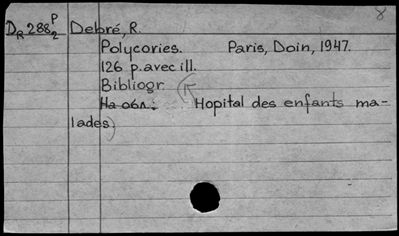 8
D_R 288 P/2 Debré, R.
Polycories. Paris, Doin, 1947.
126 p. avec ill.
Bibliogr.
На обл.: (Hopital des enfants ma-
lades)